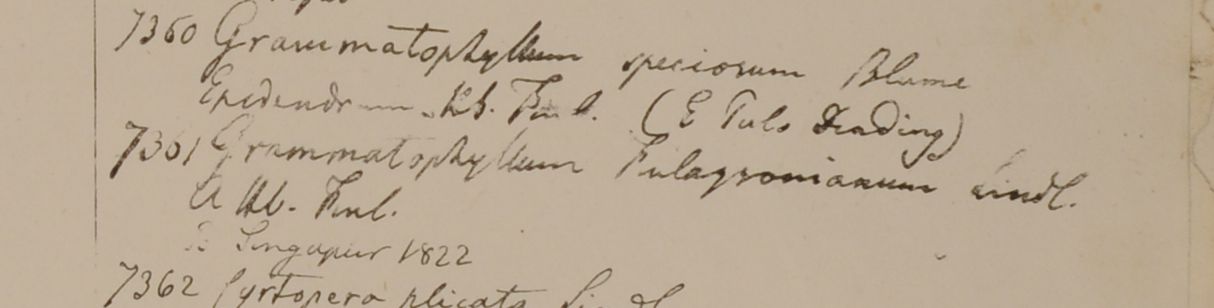 7360 Grammatophyllum speciosum Blume
Epidendrum Hb. Finl. (E Pulo Dinding)
7361 Grammatophyllum Finlaysonianum Lindl.
A Hb. Finl.
Singapur 1822
7362 Cyrtopera plicata Lindl